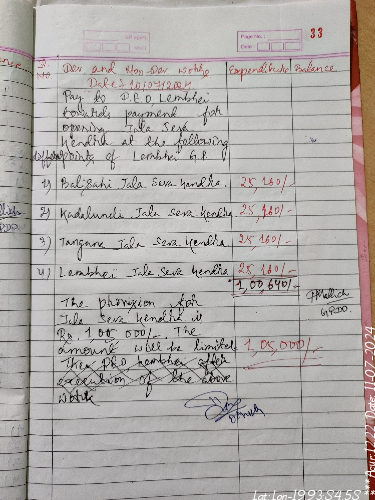 Page No.: 33
Date:
Sl. No. Dev and Non Dev Work Expenditure Balance
Date: 10/07/2024
Pay to P.E.O Lembhei
towards payment for
opening Jala Seva
Kendra at the following
points of Lembhei G.P
1) Balisahi Jala Seva Kendra. 25,160/-
2) Kadalundi Jala Seva Kendra. 25,160/-
3) Tangana Jala Seva Kendra 25,160/-
4) Lembhei Jala Seva Kendra 25,160/-
1,00,640/-
The provision for
Jala Seva Kendra is
Rs. 1,05,000/-. The
amount will be limited 1,05,000/-
The PEO Lembhei after
execution of the above
work
GPDO.
Lat:Lon-19935455 *** Asur1222 Date 11-07-2024